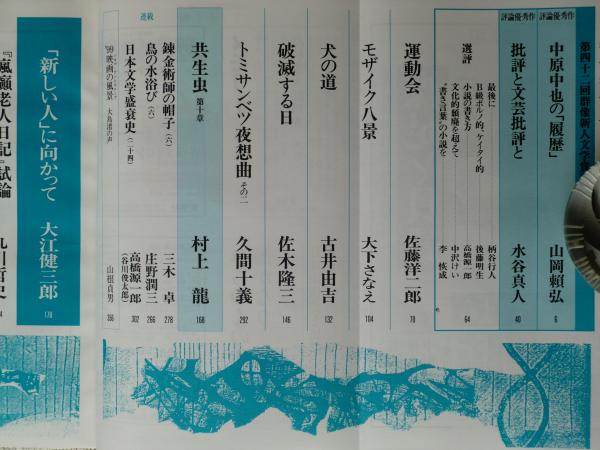 第四十二回群像新人文学賞
評論優秀作
中原中也の「履歴」
山岡頼弘
6
評論優秀作
批評と文芸批評と
水谷真人
40
選評
最後に
柄谷行人
B級ポルノ的、ケイタイ的
後藤明生
小説の書き方
高橋源一郎
文化的頽廃を超えて
中沢けい
“書き言葉”の小説を
李恢成
64
運動会
佐藤洋二郎
70
モザイク八景
大下さなえ
104
犬の道
古井由吉
132
破滅する日
佐木隆三
146
トミサンベツ夜想曲 その二
久間十義
292
共生虫 第十章
村上龍
168
連載
錬金術師の帽子(六)
三木卓
278
鳥の水浴び(六)
庄野潤三
266
日本文学盛衰史(二十四)
高橋源一郎
(谷川俊太郎)
302
'99映画の風景 大島渚の声
山根貞男
356
「新しい人」に向かって
大江健三郎
178
『瘋癲老人日記』試論